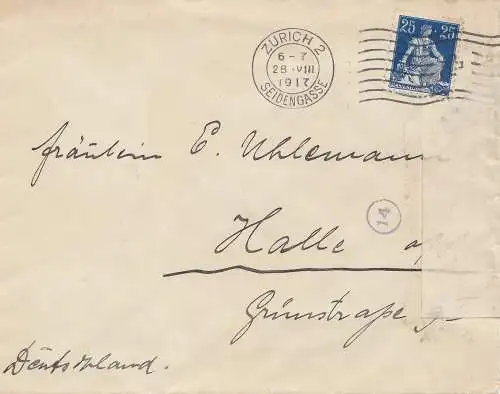 ZÜRICH 2
6-7
28.VIII
1917
SEIDENGASSE
25 25
Fräulein E. Uhlemann
14
Halle a/
Grünstraße
Deutschland.